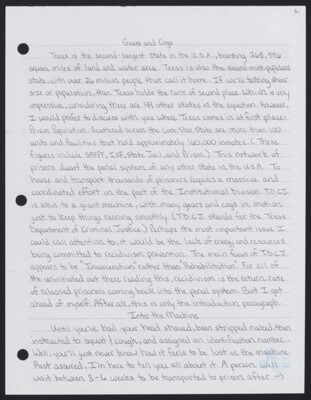 Gears and Cogs
Texas is the second-largest state in the U.S.A., boasting 268,596
square miles of land and water area. Texas is also the second-most-populous
state, with over 26 million people that call it home. If we're talking sheer
size or population, then Texas holds the rank of second place. Which is very
impressive, considering there are 48 other states in the equation. However,
I would prefer to discuss with you where Texas comes in at first place:
Prison Population. Scattered across the Lone Star State are more than 100
units and facilities that hold approximately 160,000 inmates. (These
figures include SAFPF, ISF, State Jail, and Prison.) This network of
prisons dwarf the penal system of any other state in the U.S.A. To
house and transport thousands of prisoners requires a massive and
coordinated effort on the part of the Institutional Division. T.D.C.J.
is akin to a giant machine, with many gears and cogs in motion
just to keep things running smoothly. (T.D.C.J. stands for the Texas
Department of Criminal Justice.) Perhaps the most important issue I
could call attention to, it would be the lack of energy and resources
being committed to recidivism prevention. The main focus of T.D.C.J.
appears to be "Incarceration" rather than "Rehabilitation". For all of
the uninitiated out there reading this, recidivism is the return rate
of released prisoners coming back into the penal system. But I get
ahead of myself. After all, this is only the introduction paragraph.
Into the Machine
Until you've had your head shaved, been stripped naked then
instructed to squat & cough, and assigned an identification number...
Well, you'll just never know how it feels to be lost in the machine.
Rest assured, I'm here to tell you all about it. A person will
wait between 3-6 weeks to be transported to prison after →